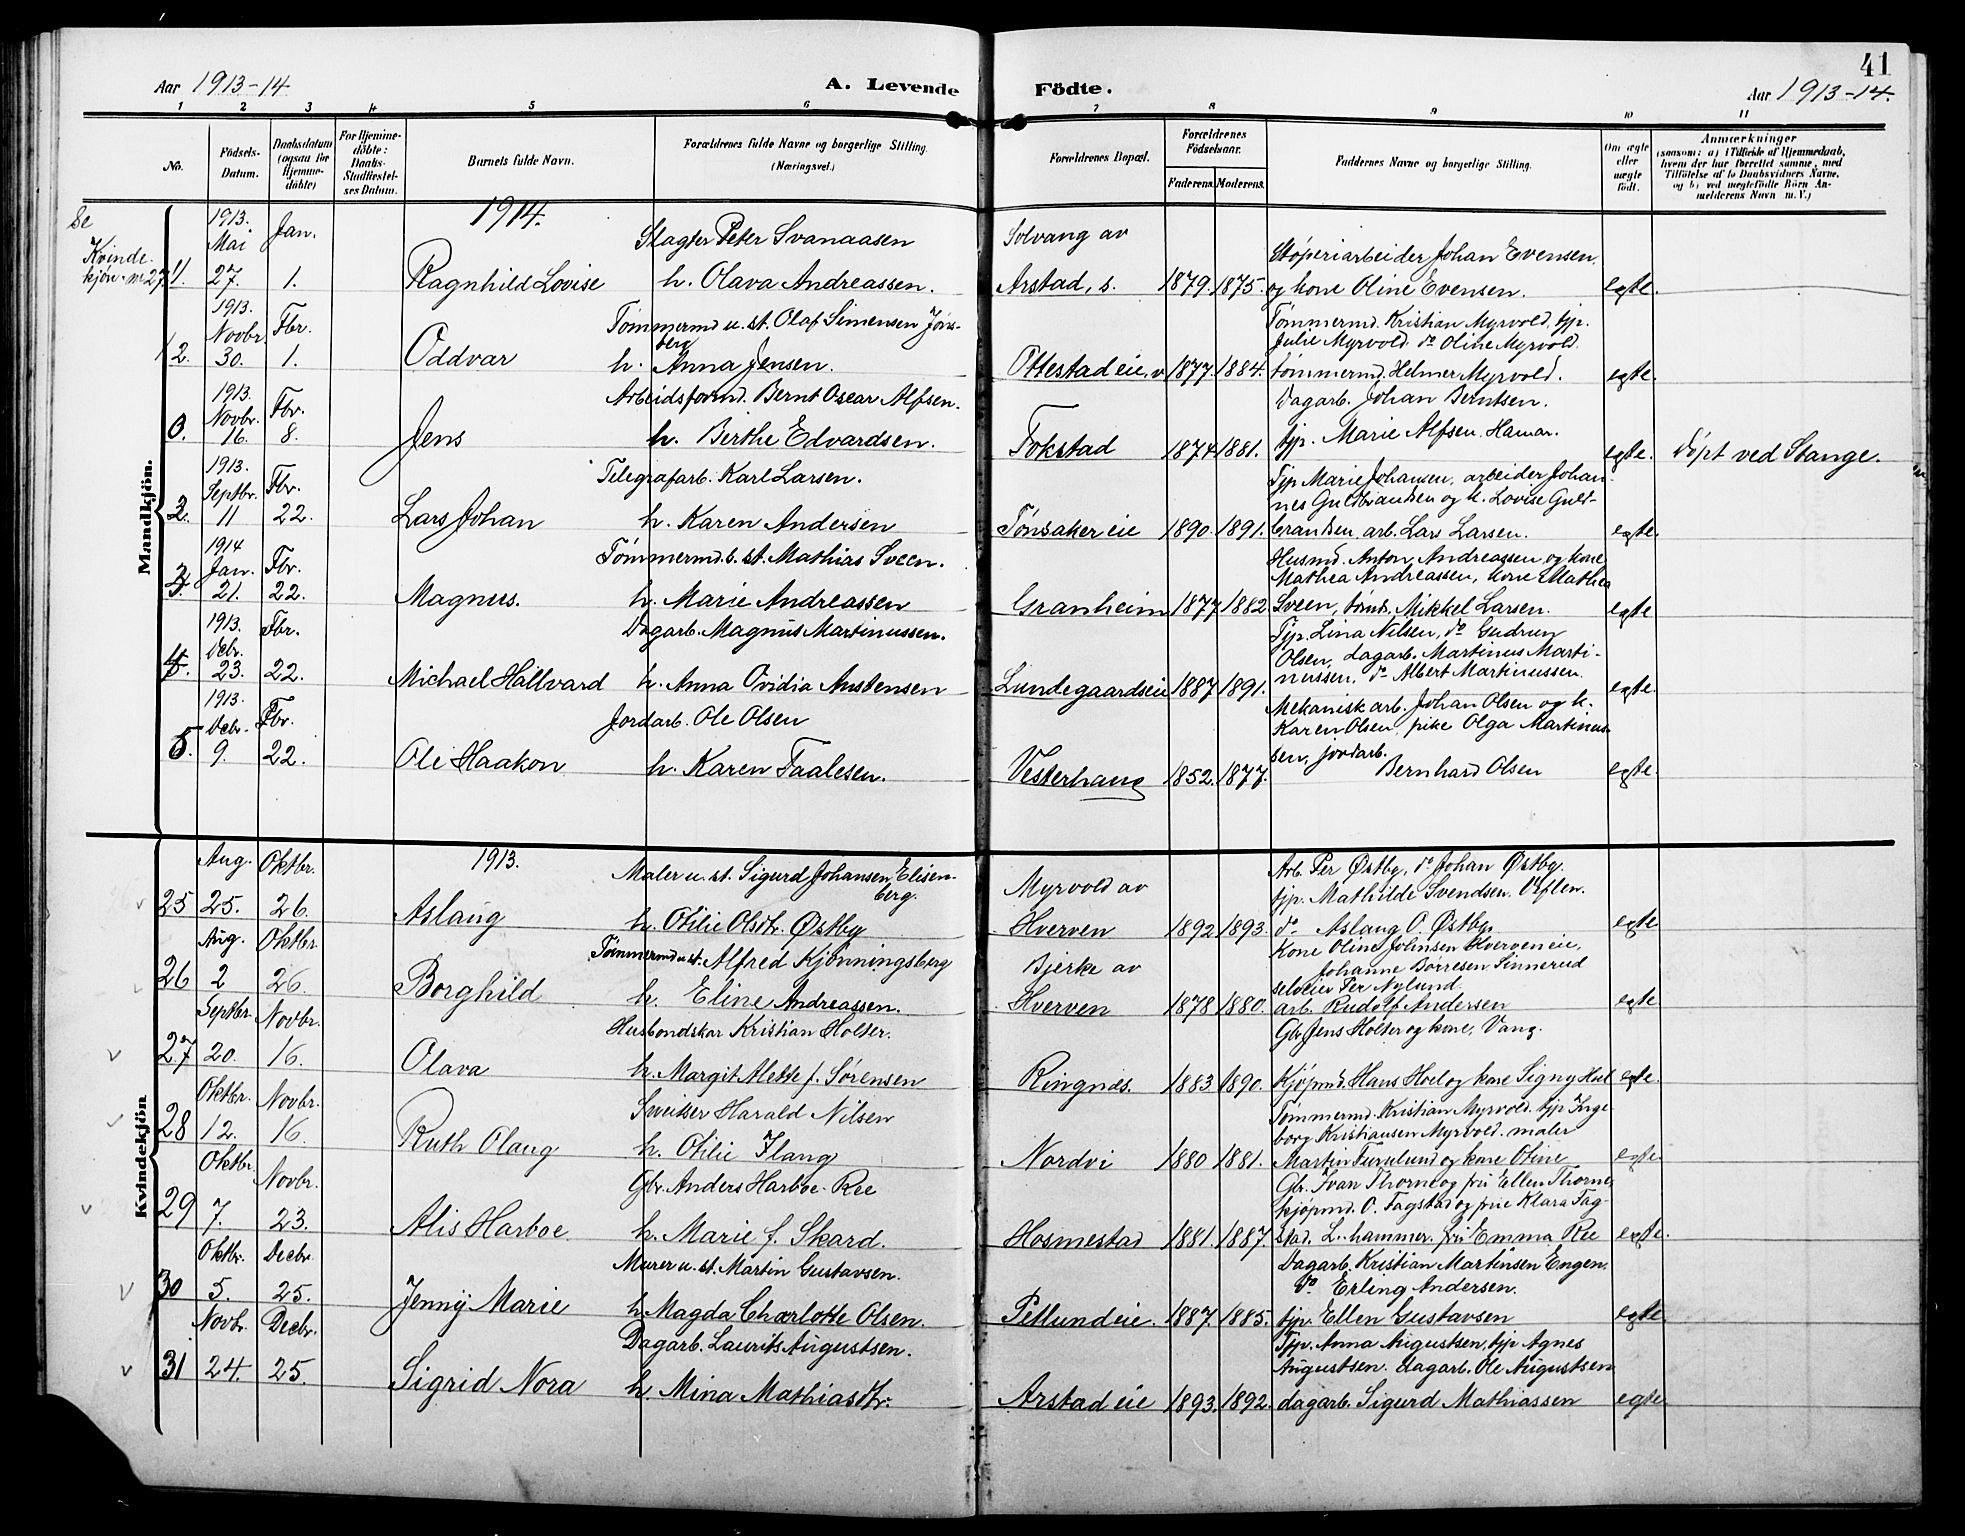 41
Aar 1913-14
A. Levende Födte.
Aar 1913-14.
1 2 3 4 5 6 7 8 9 10 11
No.
Födsels-Datum.
Daabsdatum (ogsaa for Hjemme-döbte)
For Hjemme-döbte: Daabs-Stadfæstel-ses Datum.
Barnets fulde Navn.
Forældrenes fulde Navne og borgerlige Stilling. (Næringsvei.)
Forældrenes Bopæl.
Forældrenes Födselsaar.
Faderens. Moderens.
Faddernes Navne og borgerlige Stilling.
Om ægte eller uægte födt.
Anmærkninger
(saasom: a) i Tilfælde af Hjemmedaab, hvem der har forrettet samme, med Tilföielse af to Daabsvidners Navne, og b) ved uægtefödte Börn An-melderens Navn m. V.)
Mandkjön.
Se Kvinde-kjön nr 27
1914.
1. 1913. Mai 27. Jan. 1. Ragnhild Lovise
Slagter Peter Svanaasen
h. Olava Andreassen.
Solvang av
Arstad, s. 1879. 1875.
Støperiarbeider Johan Evensen
og kone Oline Evensen. egte.
2. 1913. Novbr 30. Fbr. 1. Oddvar
Tømmermd u. st. Olaf Simensen Jøns-
berg
h. Anna Jensen.
Ottestad eie, v 1877. 1884.
Tømmermd. Kristian Myrvold, tjp.
Julie Myrvold. do Oline Myrvold.
tømmermd. Helmer Myrvold. egte.
1913. Novbr. 16. Fbr. 8. Jens
Arbeidsformd. Bernt Oscar Alfsen.
h. Berthe Edvardsen.
Fokstad 1874 1881.
Dagarb. Johan Berntsen.
tjp. Marie Alfsen. Hamar. egte. Döpt ved Stange.
2. 1913. Septbr. 11 Fbr. 22. Lars Johan
Telegrafarb. Karl Larsen.
h. Karen Andersen
Tønsaker eie 1890. 1891.
Tjp Marie Johansen, arbeider Johan-
nes Guldbrandsen og k. Lovise Guld-
brandsen, arb. Lars Larsen. egte.
3. 1914 Jan. 21. Fbr. 22. Magnus.
Tømmermd. b. st. Mathias Sveen.
h. Marie Andreassen
Granheim 1877 1882
Husmd. Anton Andreassen og kone
Mathea Andreassen, kone Mathea
Sveen, tømd. Mikkel Larsen. egte
4. 1913. Debr. 23. Fbr. 22. Michael Hallvard
Dagarb. Magnus Martinussen.
h. Anna Ovidia Anstensen
Lundegaardseie 1887 1891.
Tjp. Lina Nilsen, do Gudrun
Olsen, dagarb. Martinus Marti-
nussen, do Albert Martinussen. egte.
5. 1913. Debr. 9. Fbr. 22. Ole Haakon
Jordarb. Ole Olsen
h. Karen Taalesen.
Vesterhaug 1852. 1877.
Mekanisk arb. Johan Olsen og k.
Karen Olsen, pike Olga Martinus-
sen, jordarb.
Bernhard Olsen egte.
Kvindekjön
1913.
25 Aug. 25. Oktbr. 26. Aslaug
Maler u. st. Sigurd Johansen Elisen-
berg.
h. Otilie Olsdtr. Østby
Myrvold av
Hverven 1892 1893.
Arb. Per Østby, do Johan Østby.
tjp. Mathilde Svendsen. Veflen.
do Aslaug O. Østby. egte
26 Aug. 2 Oktbr. 26. Borghild
Tømmermd u st. Alfred Kjønningsberg
h. Eline Andreassen.
Bjerke av
Hverven 1878 1880.
Kone Oline Johnsen Hverven eie,
Johanne Børresen Sinnerud
selveier Per Nylund.
arb. Rudolf Andersen egte
27 Septbr. 20. Novbr. 16. Olava
Husbondskar Kristian Holter.
h. Margit Alette f. Sørensen
Ringnæs. 1883 1890.
Gbr Jens Holter og kone, Vang.
kjøpmd. Hans Hoel og kone Signy Hoel egte.
28 Oktbr. 12. Novbr. 16. Ruth Olaug
Sveitser Harald Nilsen
h. Otilie Flaug
Nordvi 1880 1881.
Tømmermd. Kristian Myrvold. tjp Inge-
borg Kristiansen Myrvold. maler
Martin Furulund og kone Otine egte
29 Oktbr. 7. Novbr. 23. Alis Harboe
Gbr. Anders Harboe-Ree
h. Marie f. Skard.
Hosmestad 1881 1887.
Gbr. Ivar Thorne og fru Ellen Thorne,
kjøpmd. O. Fagstad og frue Klara Fag-
stad. L.-hammer. fru Emma Ree egte.
30 Oktbr. 5. Decbr. 25. Jenny Marie
Murer u. st. Martin Gustavsen.
h. Magda Charlotte Olsen.
Petlund eie. 1887. 1885.
Dagarb. Kristian Martinsen Engen.
do Erling Andersen.
tjp. Ellen Gustavsen egte.
31 Novbr. 24. Decbr. 25. Sigrid Nora
Dagarb. Laurits Augustsen.
h. Mina Mathiasdtr.
Arstad eie 1893. 1892.
Tjp. Anna Augustsen, tjp Agnes
Augustsen. dagarb. Ole Augustsen
dagarb. Sigurd Mathiassen egte.